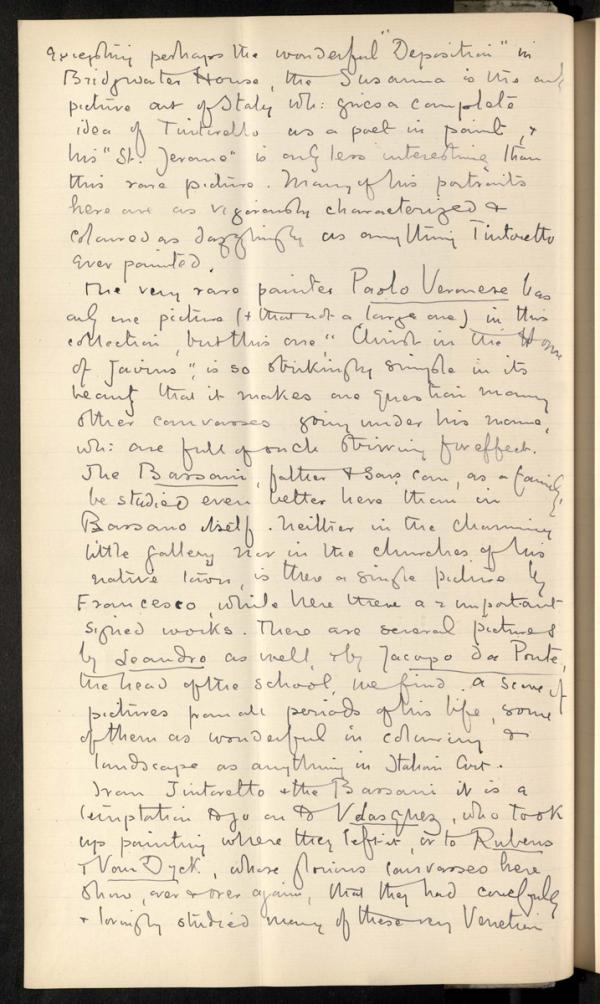 excepting perhaps the wonderful "Deposition" in
Bridgwater House, the Susanna is the only
picture out of Italy wh: gives a complete
idea of Tintoretto as a poet in paint, &
his "St. Jerome" is only less interesting than
this rare picture. Many of his portraits
here are as vigorously characterized &
coloured as dazzlingly as anything Tintoretto
ever painted.
The very rare painter Paolo Veronese has
only one picture (& that not a large one) in this
collection, but this one "Christ in the House
of Jairus", is so strikingly simple in its
beauty that it makes one question many
other canvasses going under his name,
wh: are full of such striving for effect.
The Bassani, father & sons, can, as a family,
be studied even better here than in
Bassano itself. Neither in the charming
little gallery nor in the churches of his
native town, is there a single picture by
Francesco, while here there a 2 important
signed works. There are several pictures
by Leandro as well, & by Jacopo da Ponte,
the head of the school, we find a score of
pictures from all periods of his life, some
of them as wonderful in colouring &
landscape as anything in Italian Art.
From Tintoretto & the Bassani it is a
temptation to go on to Velasquez, who took
up painting where they left it, or to Rubens
& Van Dyck, whose glorious canvasses here
show, over & over again, that they had carefully
& lovingly studied many of these very Venetian